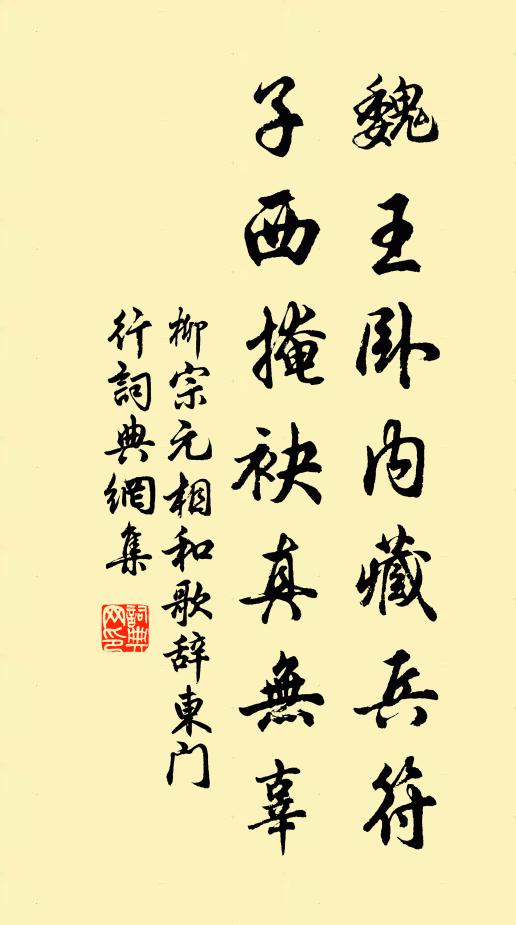 魏王卧内藏兵符
子西掩袂真無辜
柳宗元相和歌辞東门
行詞典網集
詞典
网印